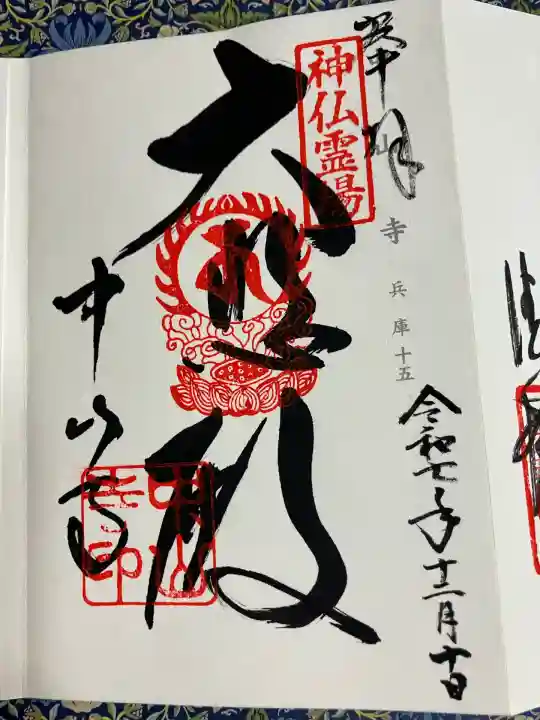 奉拝
神仏霊場
中山寺 兵庫十五
令和七年十二月十日
大悲殿
中山寺
中山寺印